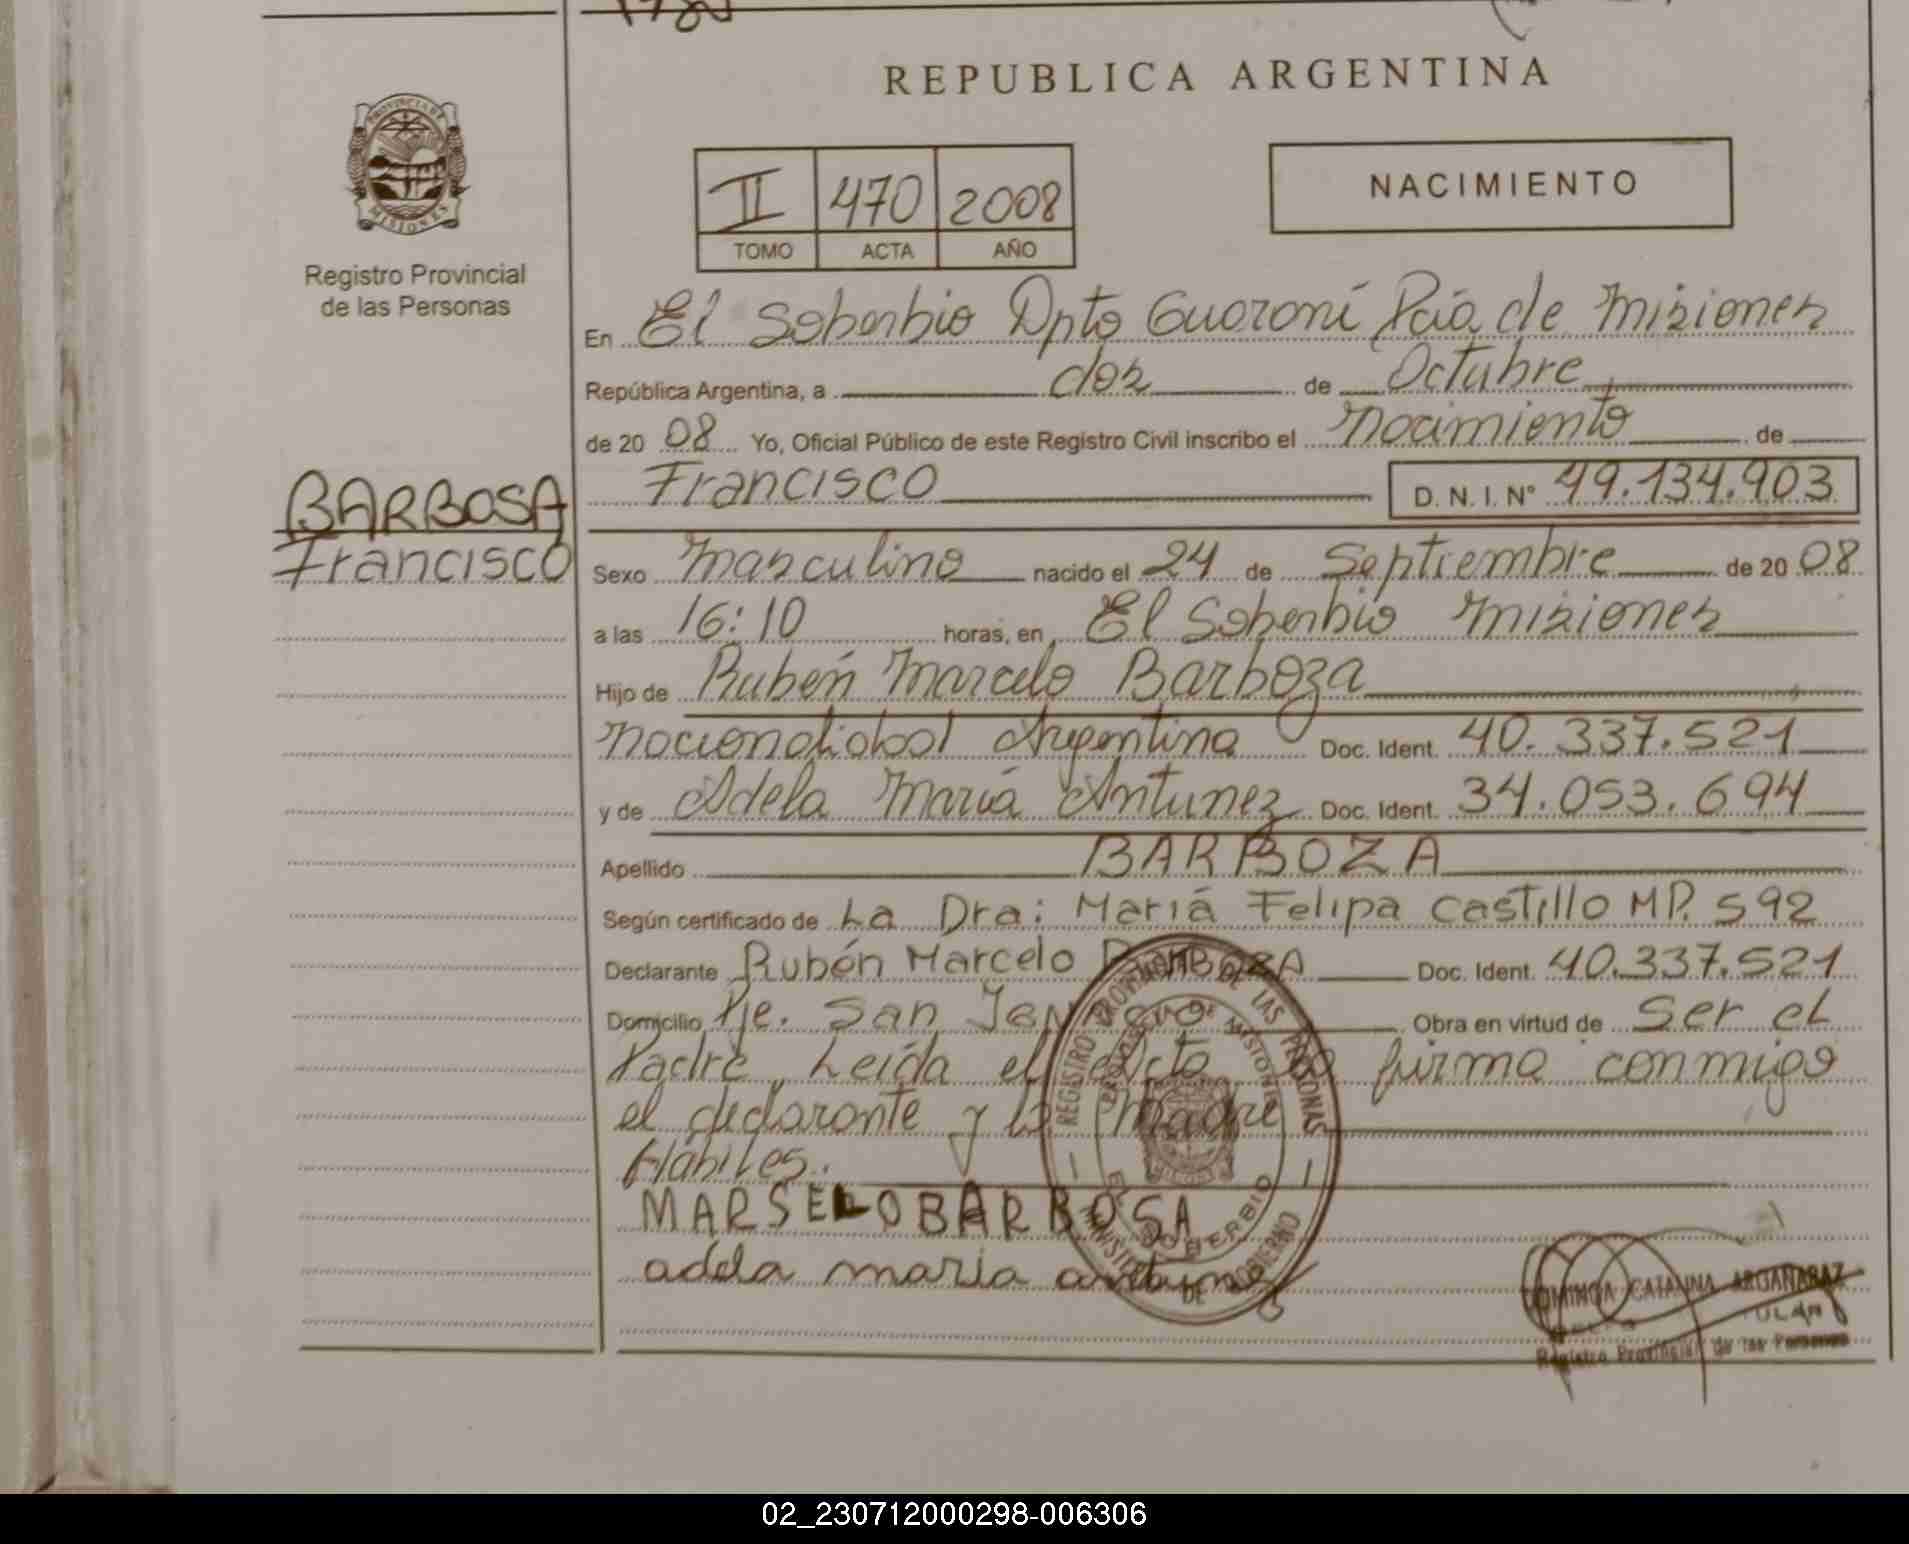 REPUBLICA ARGENTINA
PROVINCIA DE MISIONES
Registro Provincial
de las Personas
II 470 2008
TOMO ACTA AÑO
NACIMIENTO
En El Soberbio Dpto Guaraní Pcia de Misiones
República Argentina, a dos de Octubre
de 20 08 Yo, Oficial Público de este Registro Civil inscribo el Nacimiento de
Francisco D. N. I. Nº 49.134.903
BARBOSA
Francisco
Sexo Masculino nacido el 24 de Septiembre de 20 08
a las 16:10 horas, en El Soberbio Misiones
Hijo de Rubén Marcelo Barboza
Argentina Doc. Ident. 40.337.521
y de Adela María Antunez Doc. Ident. 34.053.694
Apellido BARBOZA
Según certificado de La Dra: Mariá Felipa Castillo MP. 592
Declarante Rubén Marcelo BARBOZA Doc. Ident. 40.337.521
Domicilio Pje. San Obra en virtud de Ser el
Padre, Leída el Acta la firma conmigo
el declarante y la Madre
Habiles.
MARSELO BARBOSA
adela maria antunez
REGISTRO PROVINCIAL DE LAS PERSONAS
PROVINCIA DE MISIONES
EL SOBERBIO
MINISTERIO DE GOBIERNO
DOMINGA CATALINA ARGAÑARAZ
Registro Provincial de las Personas
02_230712000298-006306